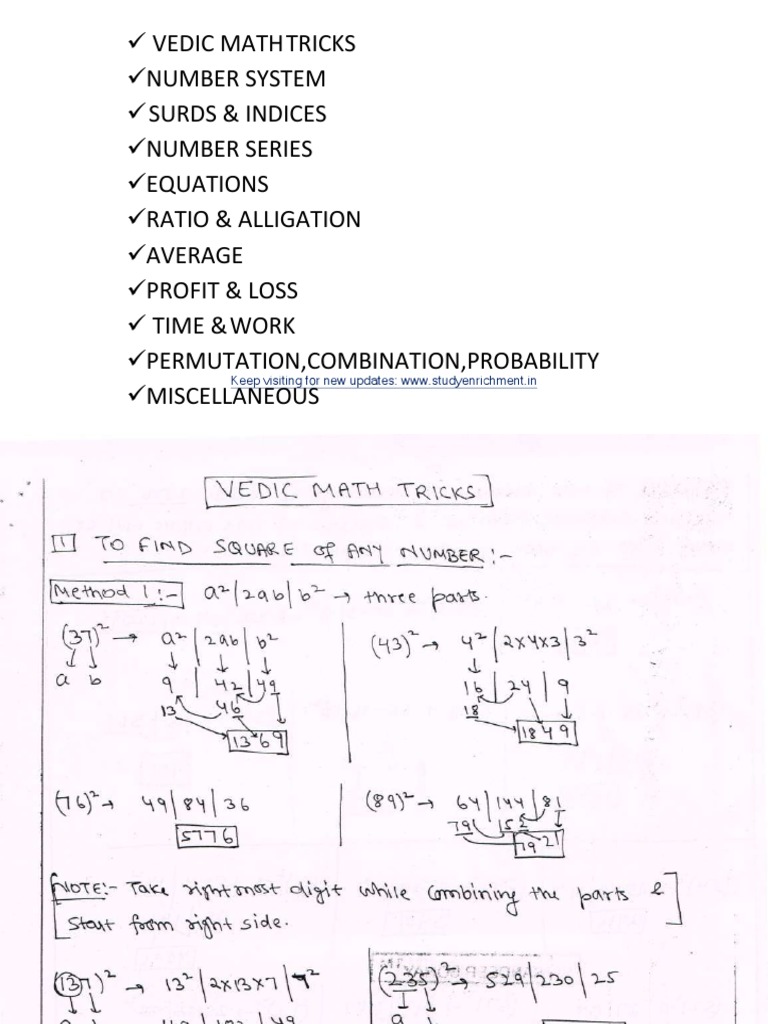 ✓ VEDIC MATH TRICKS
✓NUMBER SYSTEM
✓SURDS & INDICES
✓NUMBER SERIES
✓EQUATIONS
✓RATIO & ALLIGATION
✓AVERAGE
✓PROFIT & LOSS
✓ TIME & WORK
✓PERMUTATION,COMBINATION,PROBABILITY
Keep visiting for new updates: www.studyenrichment.in
✓MISCELLANEOUS
VEDIC MATH TRICKS
1 TO FIND SQUARE of ANY NUMBER:-
Method 1:- a²|2ab|b² → three parts.
(37)² → a²|2ab|b²
a b
9 | 42 | 49
13 46
1369
(43)² → 4²|2x4x3|3²
16 | 24 | 9
18
1849
(76)² → 49|84|36
5776
(89)² → 64|144|81
79 152
7921
NOTE:- Take rightmost digit while combining the parts &
start from right side.
(137)² → 13²|2x13x7|7²
(235)² → 529|230|25
a